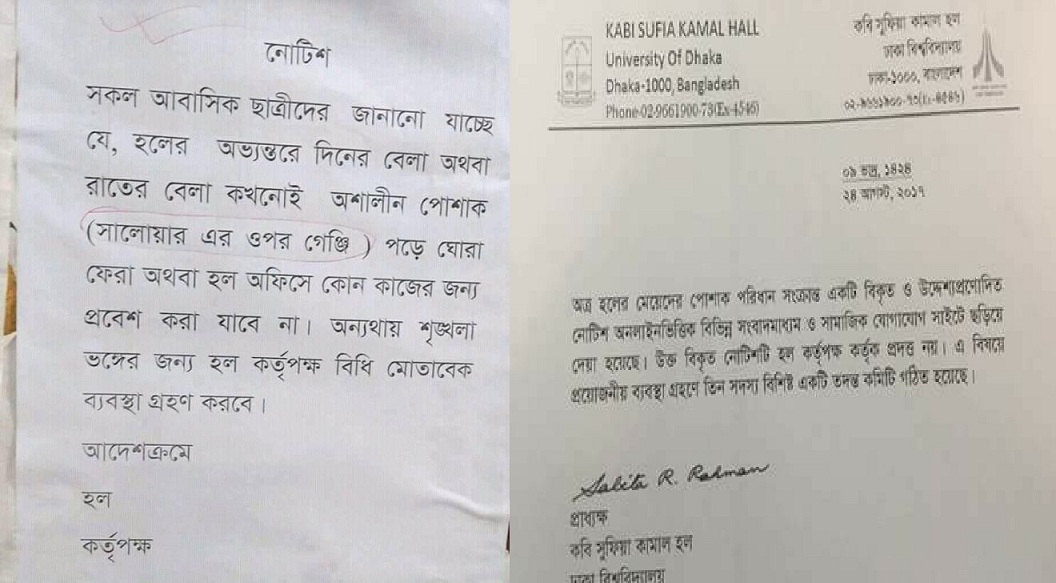 নোটিশ
সকল আবাসিক ছাত্রীদের জানানো যাচ্ছে
যে, হলের অভ্যন্তরে দিনের বেলা অথবা
রাতের বেলা কখনোই অশালীন পোশাক
(সালোয়ার এর ওপর গেঞ্জি) পড়ে ঘোরা
ফেরা অথবা হল অফিসে কোন কাজের জন্য
প্রবেশ করা যাবে না। অন্যথায় শৃঙ্খলা
ভঙ্গের জন্য হল কর্তৃপক্ষ বিধি মোতাবেক
ব্যবস্থা গ্রহণ করবে।
আদেশক্রমে
হল
কর্তৃপক্ষ
KABI SUFIA KAMAL HALL
University Of Dhaka
Dhaka-1000, Bangladesh
Phone-02-9661900-73(Ex-4546)
কবি সুফিয়া কামাল হল
ঢাকা বিশ্ববিদ্যালয়
ঢাকা-১০০০, বাংলাদেশ
০২-৯৬৬১৯০০-৭৩(Ex-৪৫৪৬)
০৯ ভাদ্র, ১৪২৪
২৪ আগস্ট, ২০১৭
অত্র হলের মেয়েদের পোশাক পরিধান সংক্রান্ত একটি বিকৃত ও উদ্দেশ্যপ্রণোদিত
নোটিশ অনলাইনভিত্তিক বিভিন্ন সংবাদমাধ্যম ও সামাজিক যোগাযোগ সাইটে ছড়িয়ে
দেয়া হয়েছে। উক্ত বিকৃত নোটিশটি হল কর্তৃপক্ষ কর্তৃক প্রদত্ত নয়। এ বিষয়ে
প্রয়োজনীয় ব্যবস্থা গ্রহণে তিন সদস্য বিশিষ্ট একটি তদন্ত কমিটি গঠিত হয়েছে।
Sabita R. Rahman
প্রাধ্যক্ষ
কবি সুফিয়া কামাল হল
ঢাকা বিশ্ববিদ্যালয়